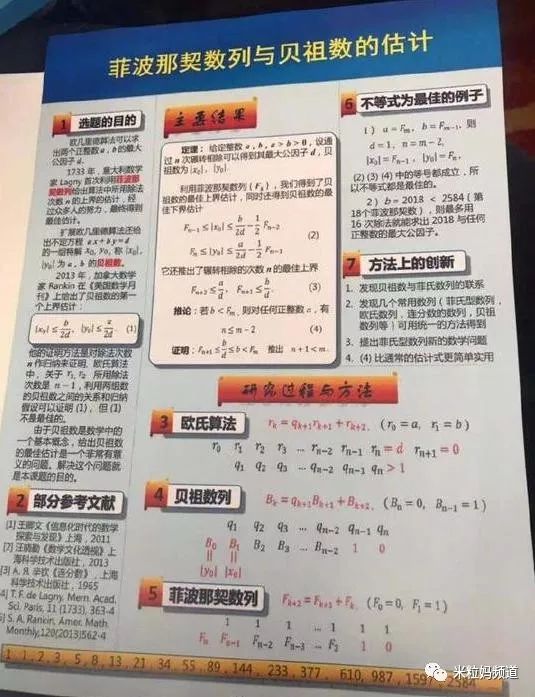 菲波那契数列与贝祖数的估计
1 选题的目的
欧几里德算法可以求
出两个正整数 a, b 的最大
公因子 d.
1733 年，意大利数学
家 Lagny 首次利用菲波那
契数列给出算法中所用除法
次数 n 的上界的估计，经
过众多人的努力，最终得到
最佳估计。
扩展欧几里德算法还给
出不定方程 ax + by = d
的一组特解 x₀, y₀, 称 |x₀|,
|y₀| 为 a, b 的贝祖数。
2013 年，加拿大数学
家 Rankin 在《美国数学月
刊》上给出了贝祖数的第一
个上界估计：
|x₀| ≤ b/2d, |y₀| ≤ a/2d. (1)
他的证明方法是对除法次数
n 作归纳来证明. 欧氏算法
中，关于 r₁, r₂ 所用除法
次数是 n − 1，利用两组数
的贝祖数之间的关系和归纳
假设可以证明 (1)，但 (1)
不是最佳的。
由于贝祖数是数学中的
一个基本概念，给出贝祖数
的最佳估计是一个非常有意
义的问题。解决这个问题就
是本课题的目的。
2 部分参考文献
[1] 王卿文《信息化时代的数学
探索与发现》上海，2011
王晓勤《数学文化透视》上
海科学技术出版社，2013
[3] А. Я. 辛钦《连分数》，上海
科学技术出版社，1965
4] T. F. de Lagny, Mem. Acad.
Sci. Paris, 11 (1733), 363-4
5] S. A. Rankin, Amer. Math.
Monthly,120(2013)562-4
主要结果
定理：给定整数 a, b, a > b > 0，设通
过 n 次辗转相除可以得到其最大公因子 d，贝
祖数为 |x₀|, |y₀|.
利用菲波那契数列 {Fₖ}，我们得到了贝
祖数的最佳上界估计，同时还得到贝祖数的最
佳下界估计
Fₙ₋₁ ≤ |x₀| ≤ b/2d − 1/2 Fₙ₋₂
(2)
Fₙ ≤ |y₀| ≤ a/2d − 1/2 Fₙ₋₁
它还推出了辗转相除的次数 n 的最佳上界
Fₙ₊₂ ≤ a/d, Fₙ₊₁ ≤ b/d. (3)
推论：若 b < Fₘ，则对任何正整数 a，有
n ≤ m − 2 (4)
证明：Fₙ₊₁ ≤ b/d ≤ b < Fₘ 推出 n + 1 < m.
6 不等式为最佳的例子
1）a = Fₘ, b = Fₘ₋₁, 则
d = 1, n = m − 2,
|x₀| = Fₙ₋₁, |y₀| = Fₙ.
(2) (3) (4) 中的等号都成立，所
以不等式都是最佳的。
2）b = 2018 < 2584（第
18个菲波那契数），则最多用
16 次除法就能求出 2018 与任何
正整数的最大公因子。
7 方法上的创新
1. 发现贝祖数与菲氏数列的联系
2. 发现几个常用数列（菲氏型数列，
欧氏数列，连分数的数列，贝祖
数列等）可用统一的方法得到
3. 提出菲氏型数列新的数学问题
4. (4) 比通常的估计式更简单实用
研究过程与方法
3 欧氏算法 rₖ = qₖ₊₁rₖ₊₁ + rₖ₊₂, (r₀ = a, r₁ = b)
r₀ r₁ r₂ r₃ ... rₙ₋₂ rₙ₋₁ rₙ = d rₙ₊₁ = 0
q₁ q₂ q₃ ... qₙ₋₂ qₙ₋₁ qₙ > 1
4 贝祖数列 Bₖ = qₖ₊₁Bₖ₊₁ + Bₖ₊₂, (Bₙ = 0, Bₙ₋₁ = 1)
q₁ q₂ q₃ ... qₙ₋₂ qₙ₋₁ qₙ
B₀ B₁ B₂ B₃ ... Bₙ₋₂ 1 0
|| ||
|y₀| |x₀|
5 菲波那契数列 Fₖ₊₂ = Fₖ₊₁ + Fₖ, (F₀ = 0, F₁ = 1)
1 1 1 ... 1 1 1
Fₙ Fₙ₋₁ Fₙ₋₂ Fₙ₋₃ ... F₂ 1 0
1, 1, 2, 3, 5, 8, 13, 21, 34, 55, 89, 144, 233, 377, 610, 987, 1597, 2584
米粒妈频道